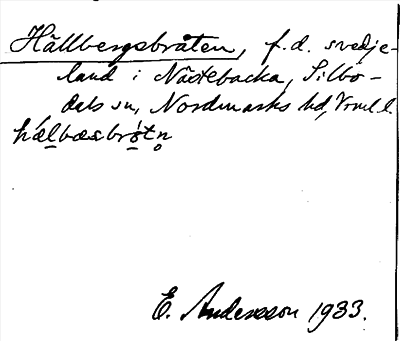 Hällbergsbråten, f.d. svedje-
land i Nästebacka, Silbo-
dals sn, Nordmarks hd, Vrml.
hælbæsbrótn
E. Andersson 1933.